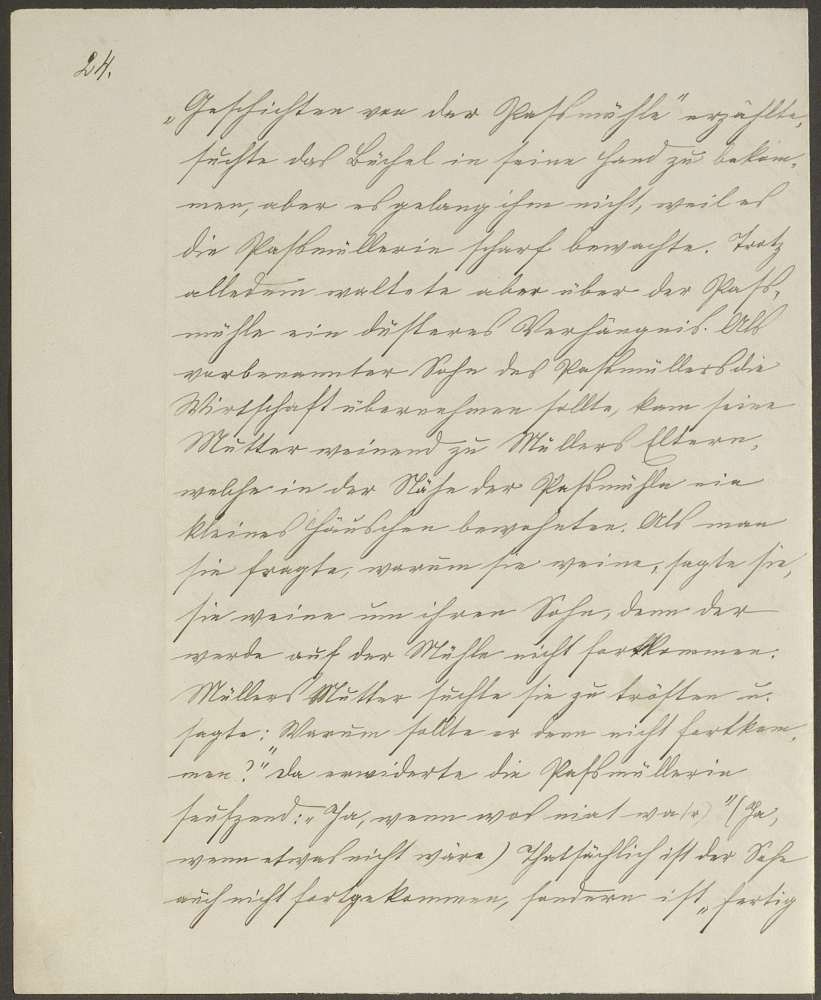 24.
„Geschichten von der Passmühle" erzählte,
suchte das Büchel in seine Hand zu bekom-
men, aber es gelang ihm nicht, weil es
die Passmüllerin scharf bewachte. Trotz
alledem waltete aber über der Pass-
mühle ein düsteres Verhängnis. Als
vorbenannter Sohn des Passmüllers die
Wirtschaft übernehmen sollte, kam seine
Mutter weinend zu Müllers Eltern,
welche in der Nähe der Passmühle ein
kleines Häuschen bewohnten. Als man
sie fragte, warum sie weine, sagte sie,
sie weine um ihren Sohn, denn der
werde auf der Mühle nicht fortkommen.
Müllers Mutter suchte sie zu trösten u.
sagte: „Warum sollte er denn nicht fortkom-
men?" Da erwiderte die Passmüllerin
seufzend: „Ja, wenn wos niat wa(r)" (Ja,
wenn etwas nicht wäre) Thatsächlich ist der Sohn
auch nicht fortgekommen, sondern ist „fertig